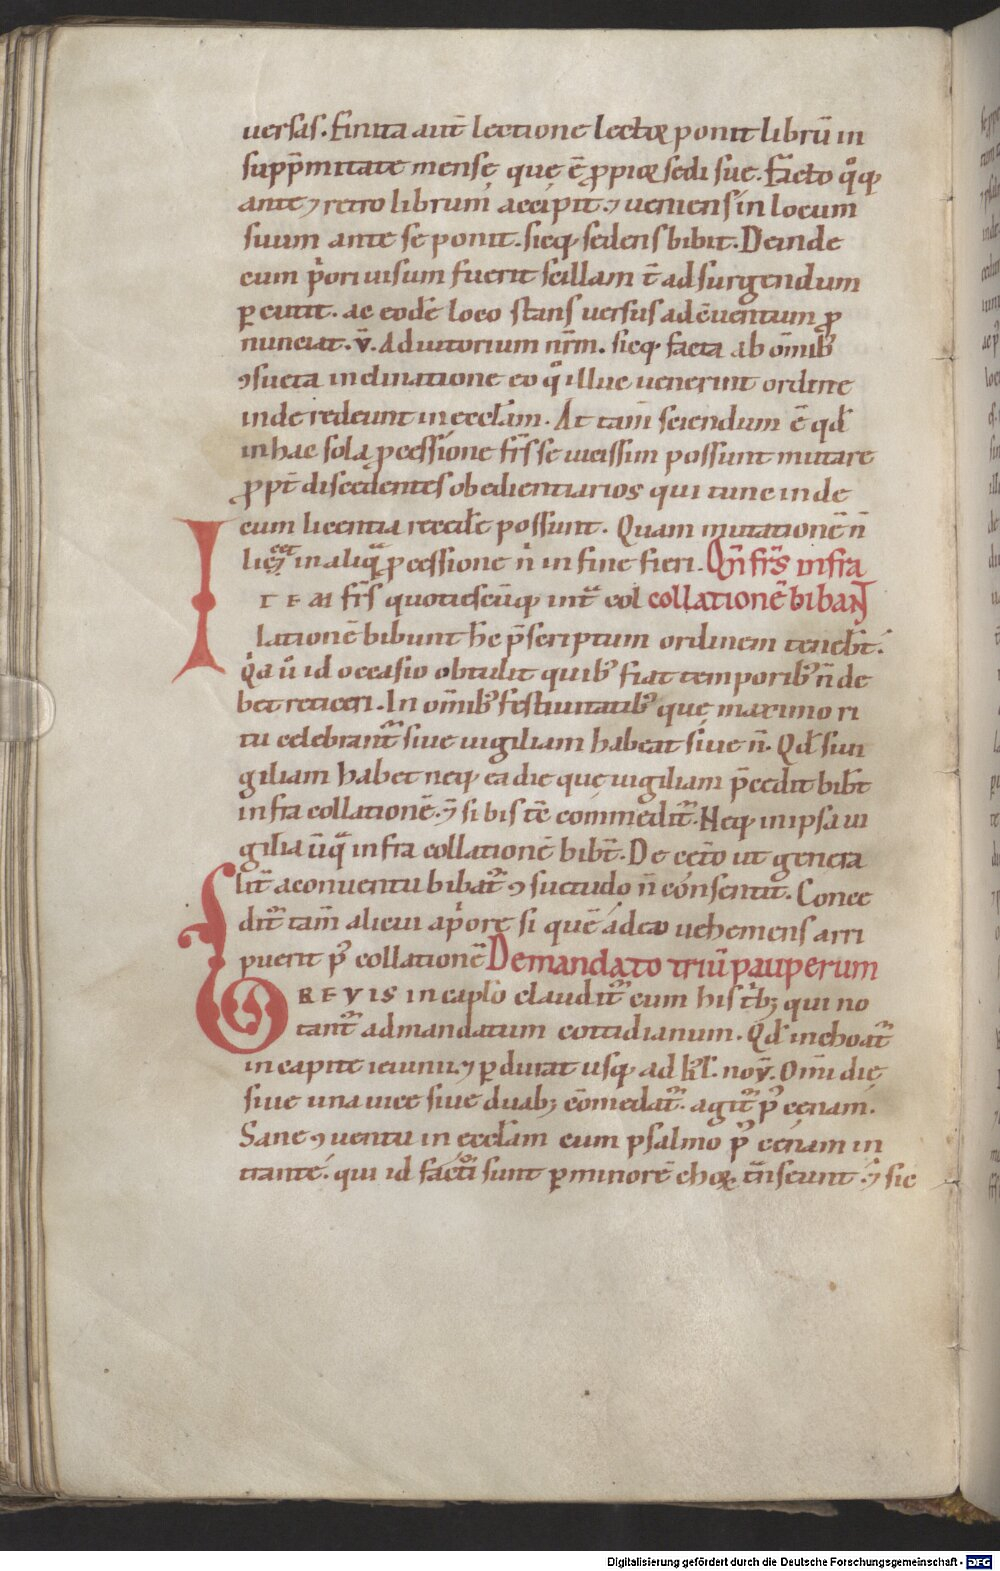 uersas. Finita aut̄ lectione lectoꝝ ponit librū in
supp̄mitate mensę quę ē ꝓpioꝝ sedi suę. Facto q̊q;
ante ⁊ retro librum accipit. ⁊ ueniens in locum
suum ante se ponit. sicq; sedens bibit. Deinde
cum p̊ori uisum fuerit scillam t̄ ad surgendum
ꝑcutit. ac eodē loco stans uersus ad c̄uentum ꝓ
nunciat. v̄. Adiutorium nr̄m. sicq; facta ab om̄ib᷒
ꝯsueta inclinatione eo q̊ illuc uenerunt ordine
inde redeunt in ecclam̄. At tam̄ sciendum ē qd̄
in hac sola ꝓcessione frs̄ se uicissim possunt mutare
ꝓpt̄ discedentes obedientiarios qui tunc inde
cum licentia recedē possunt. Quam mutationē n̄
lic& in aliq̄ ꝓcessione n̄ in fine fieri. Qn̄ frs̄ infra
ITEM frs̄ quotiescūq; int̄ col collationē bibaɴt̄
lationē bibunt hc̄ p̄scriptum ordinem tenebt̄.
Qa ů id occasio obtulit quib᷒ fiat temporib᷒ n̄ de
bet reticeri. In om̄ib᷒ festiuitatib᷒ quę maximo ri
tu celebrant᷑ siue uigiliam habeat siue n̄. Qd̄ si ui
giliam habet neq; ea die quę uigiliam p̄cedit bibt̄
infra collationē. ⁊ si bis tc̄ commedit᷑. Neq; in ipsa ui
gilia ūq̄ infra collationē bibt̄. De cet̄o ut genera
lit̄ a conuentu bibat᷑ ꝯsuetudo n̄ consentit. Conce
dit᷑ tam̄ alicui a p̊ore si quē adeo uehemens arri
puerit p᷒ collationē De mandato triū pauperum
SOREVIS in caplo claudit᷑ cum his trib; qui no
tant᷑ ad mandatum cottidianum. Qd̄ inchoat᷑
in capite ieiunii. ⁊ ꝑdurat usq; ad kl̄. nov̄. Omi die
siue una uice siue duab; com̄edat᷑. agit᷑ p᷒ cęnam.
Sane ꝯuentu in ecclam̄ cum psalmo p᷒ cęnam in
trante. qui id facti sunt ꝑ minorē choꝝ t̄nseunt. ⁊ sic
Digitalisierung gefördert durch die Deutsche Forschungsgemeinschaft - DFG